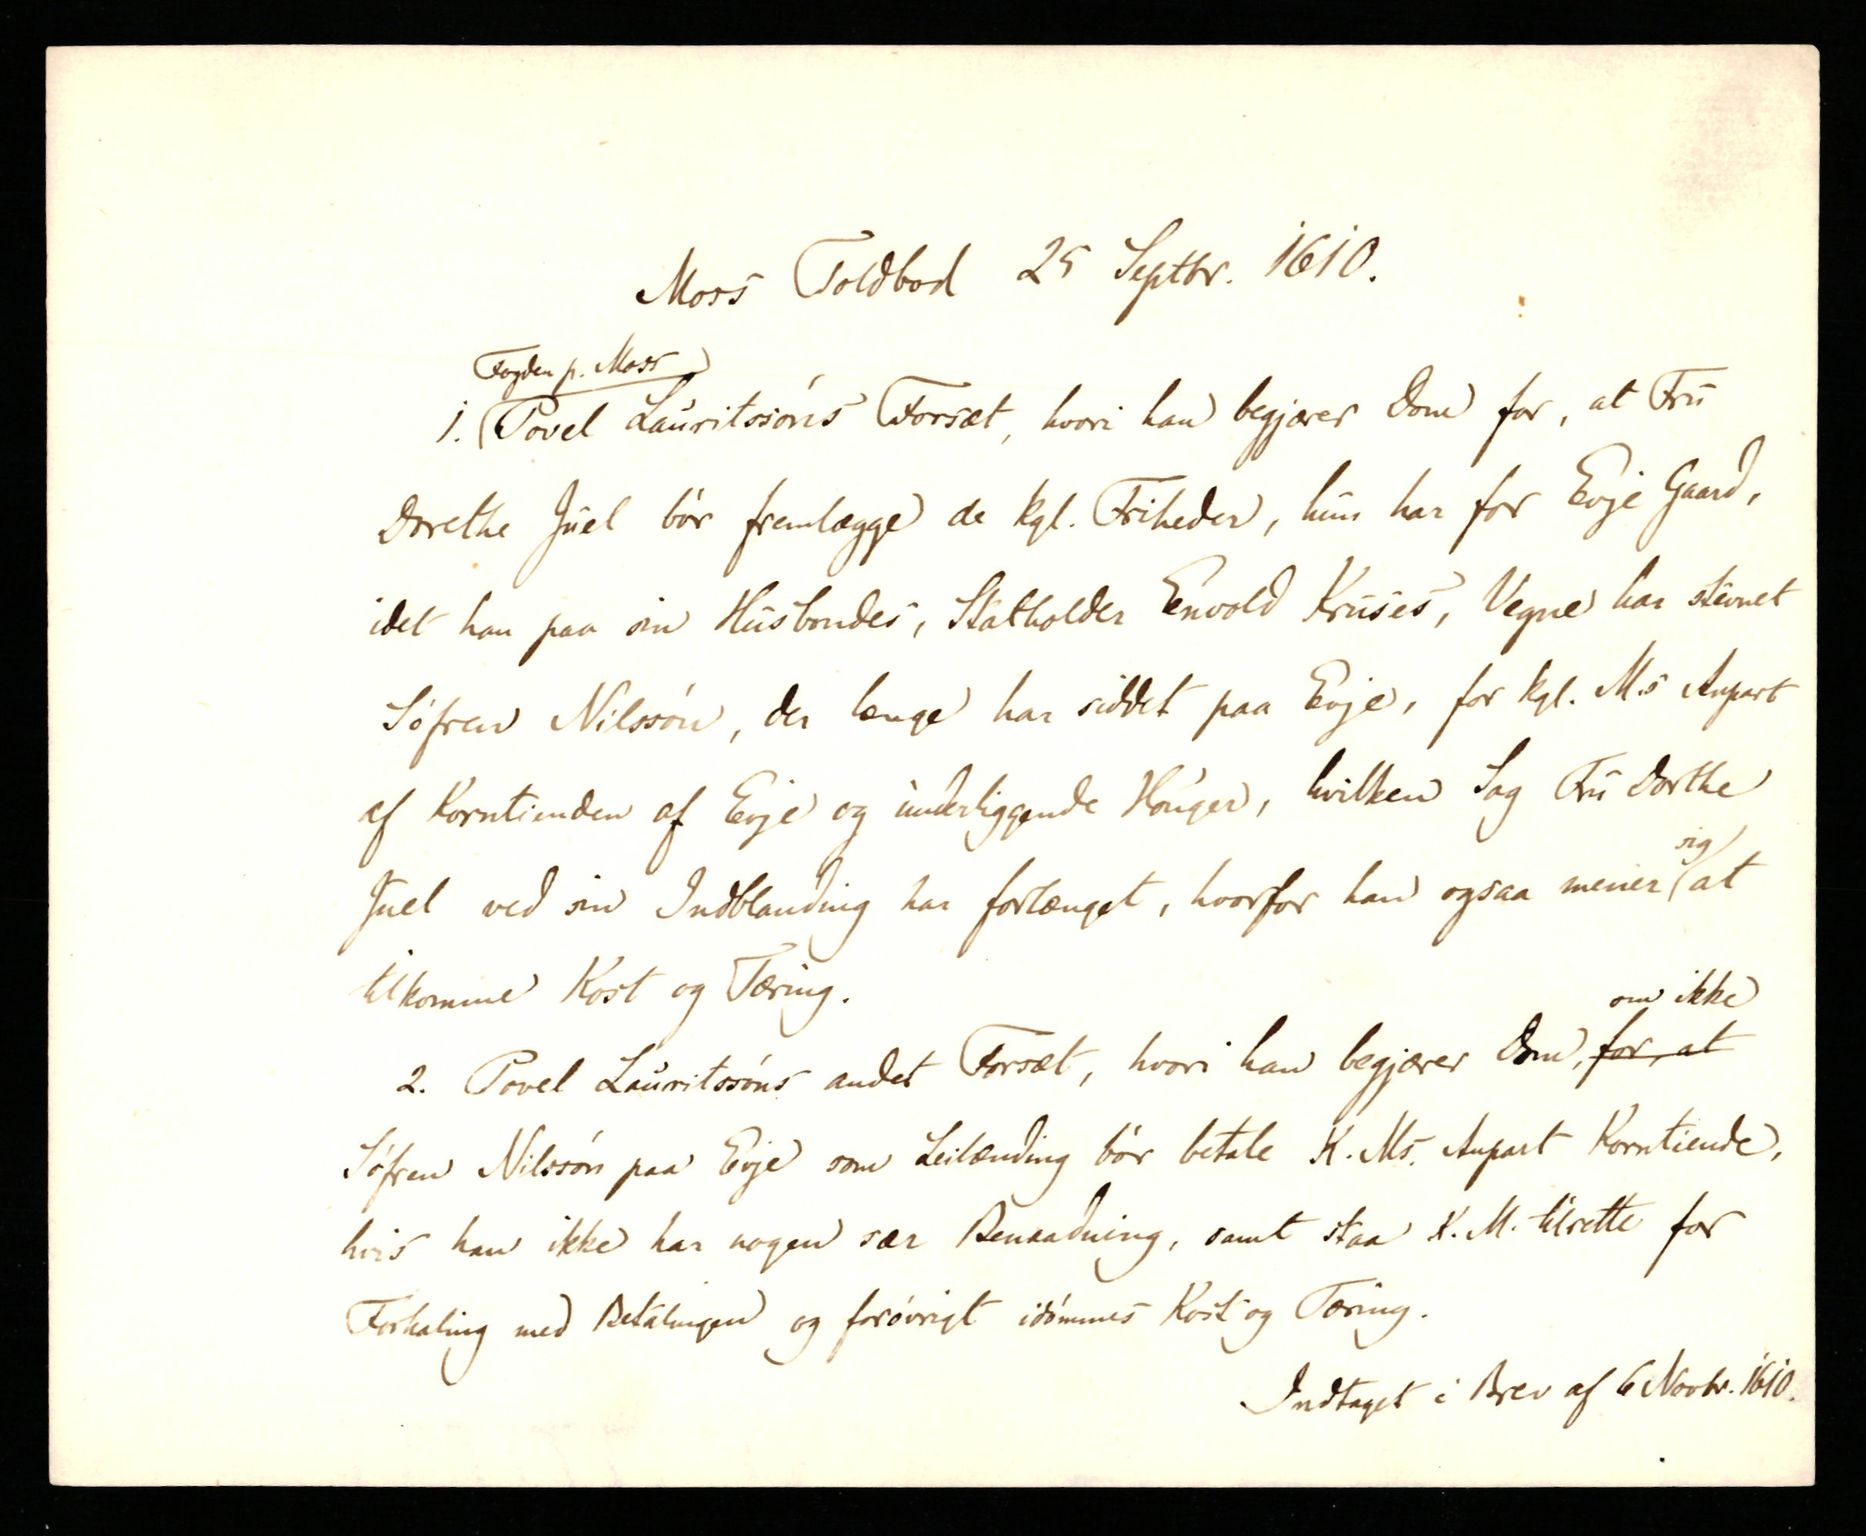 Moss Toldbod 25 Septbr. 1610.
Fogden p. Moss
1. Povel Lauritssöns Forsæt, hvori han begjærer Dom for, at Fru
Dorethe Juel bör fremlægge de kgl. Friheder, hun har for Evje Gaard,
idet han paa sin Husbondes, Statholder Envold Kruses, Vegne har stevnet
Söfren Nilssön, der længe har siddet paa Evje, for kgl. M.s Anpart
af Korntienden af Evje og underliggende Hönger, hvilken Sag Fru Dorthe
Juel ved sin Indblanding har forlænget, hvorfor han ogsaa mener sig at
tilkomme Kost og Tæring.
2. Povel Lauritssöns andet Forsæt, hvori han begjærer Dom, for, at om ikke
Söfren Nilssön paa Evje som Leilænding bör betale K. Ms. Anpart Korntiende,
hvis han ikke har nogen sær Benaadning, samt staa K. M. tilrette for
Forhaling med Betalingen og forövrigt idömmes Kost og Tæring.
Indtaget i Brev af 6 Novbr. 1610.